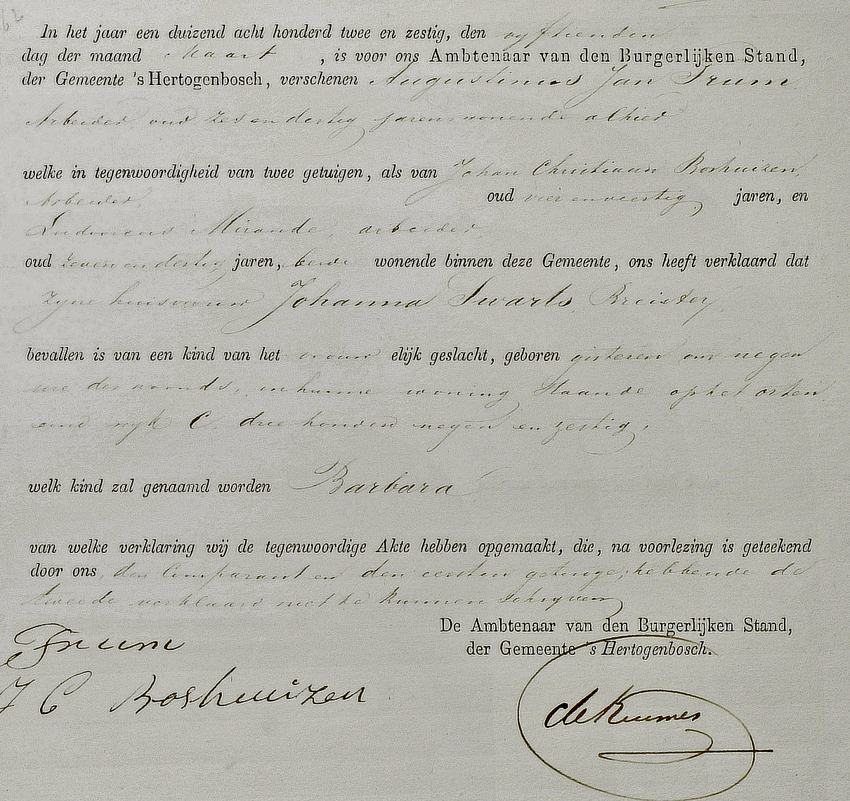 62
In het jaar een duizend acht honderd twee en zestig, den vyftienden
dag der maand Maart , is voor ons Ambtenaar van den Burgerlijken Stand,
der Gemeente 's Hertogenbosch, verschenen Augustinus Jan Frum
Arbeider oud zes en dertig jaren wonende alhier
welke in tegenwoordigheid van twee getuigen, als van Johan Christiaan Boshuizen,
Arbeider, oud vier en veertig jaren, en
Ludovicus Mirande, arbeider,
oud zeven en dertig jaren, beide wonende binnen deze Gemeente, ons heeft verklaard dat
zyne huisvrouw Johanna Swarts Breister,
bevallen is van een kind van het vrouw elijk geslacht, geboren gisteren om negen
ure des avonds, in hunne woning staande op het orten
eind wyk C drie honderd negen en zestig,
welk kind zal genaamd worden Barbara
van welke verklaring wij de tegenwoordige Akte hebben opgemaakt, die, na voorlezing is geteekend
door ons, den Comparant en den eersten getuige, hebbende de
tweede verklaard niet te kunnen schryven
De Ambtenaar van den Burgerlijken Stand,
der Gemeente 's Hertogenbosch.
Frum
J C Boshuizen